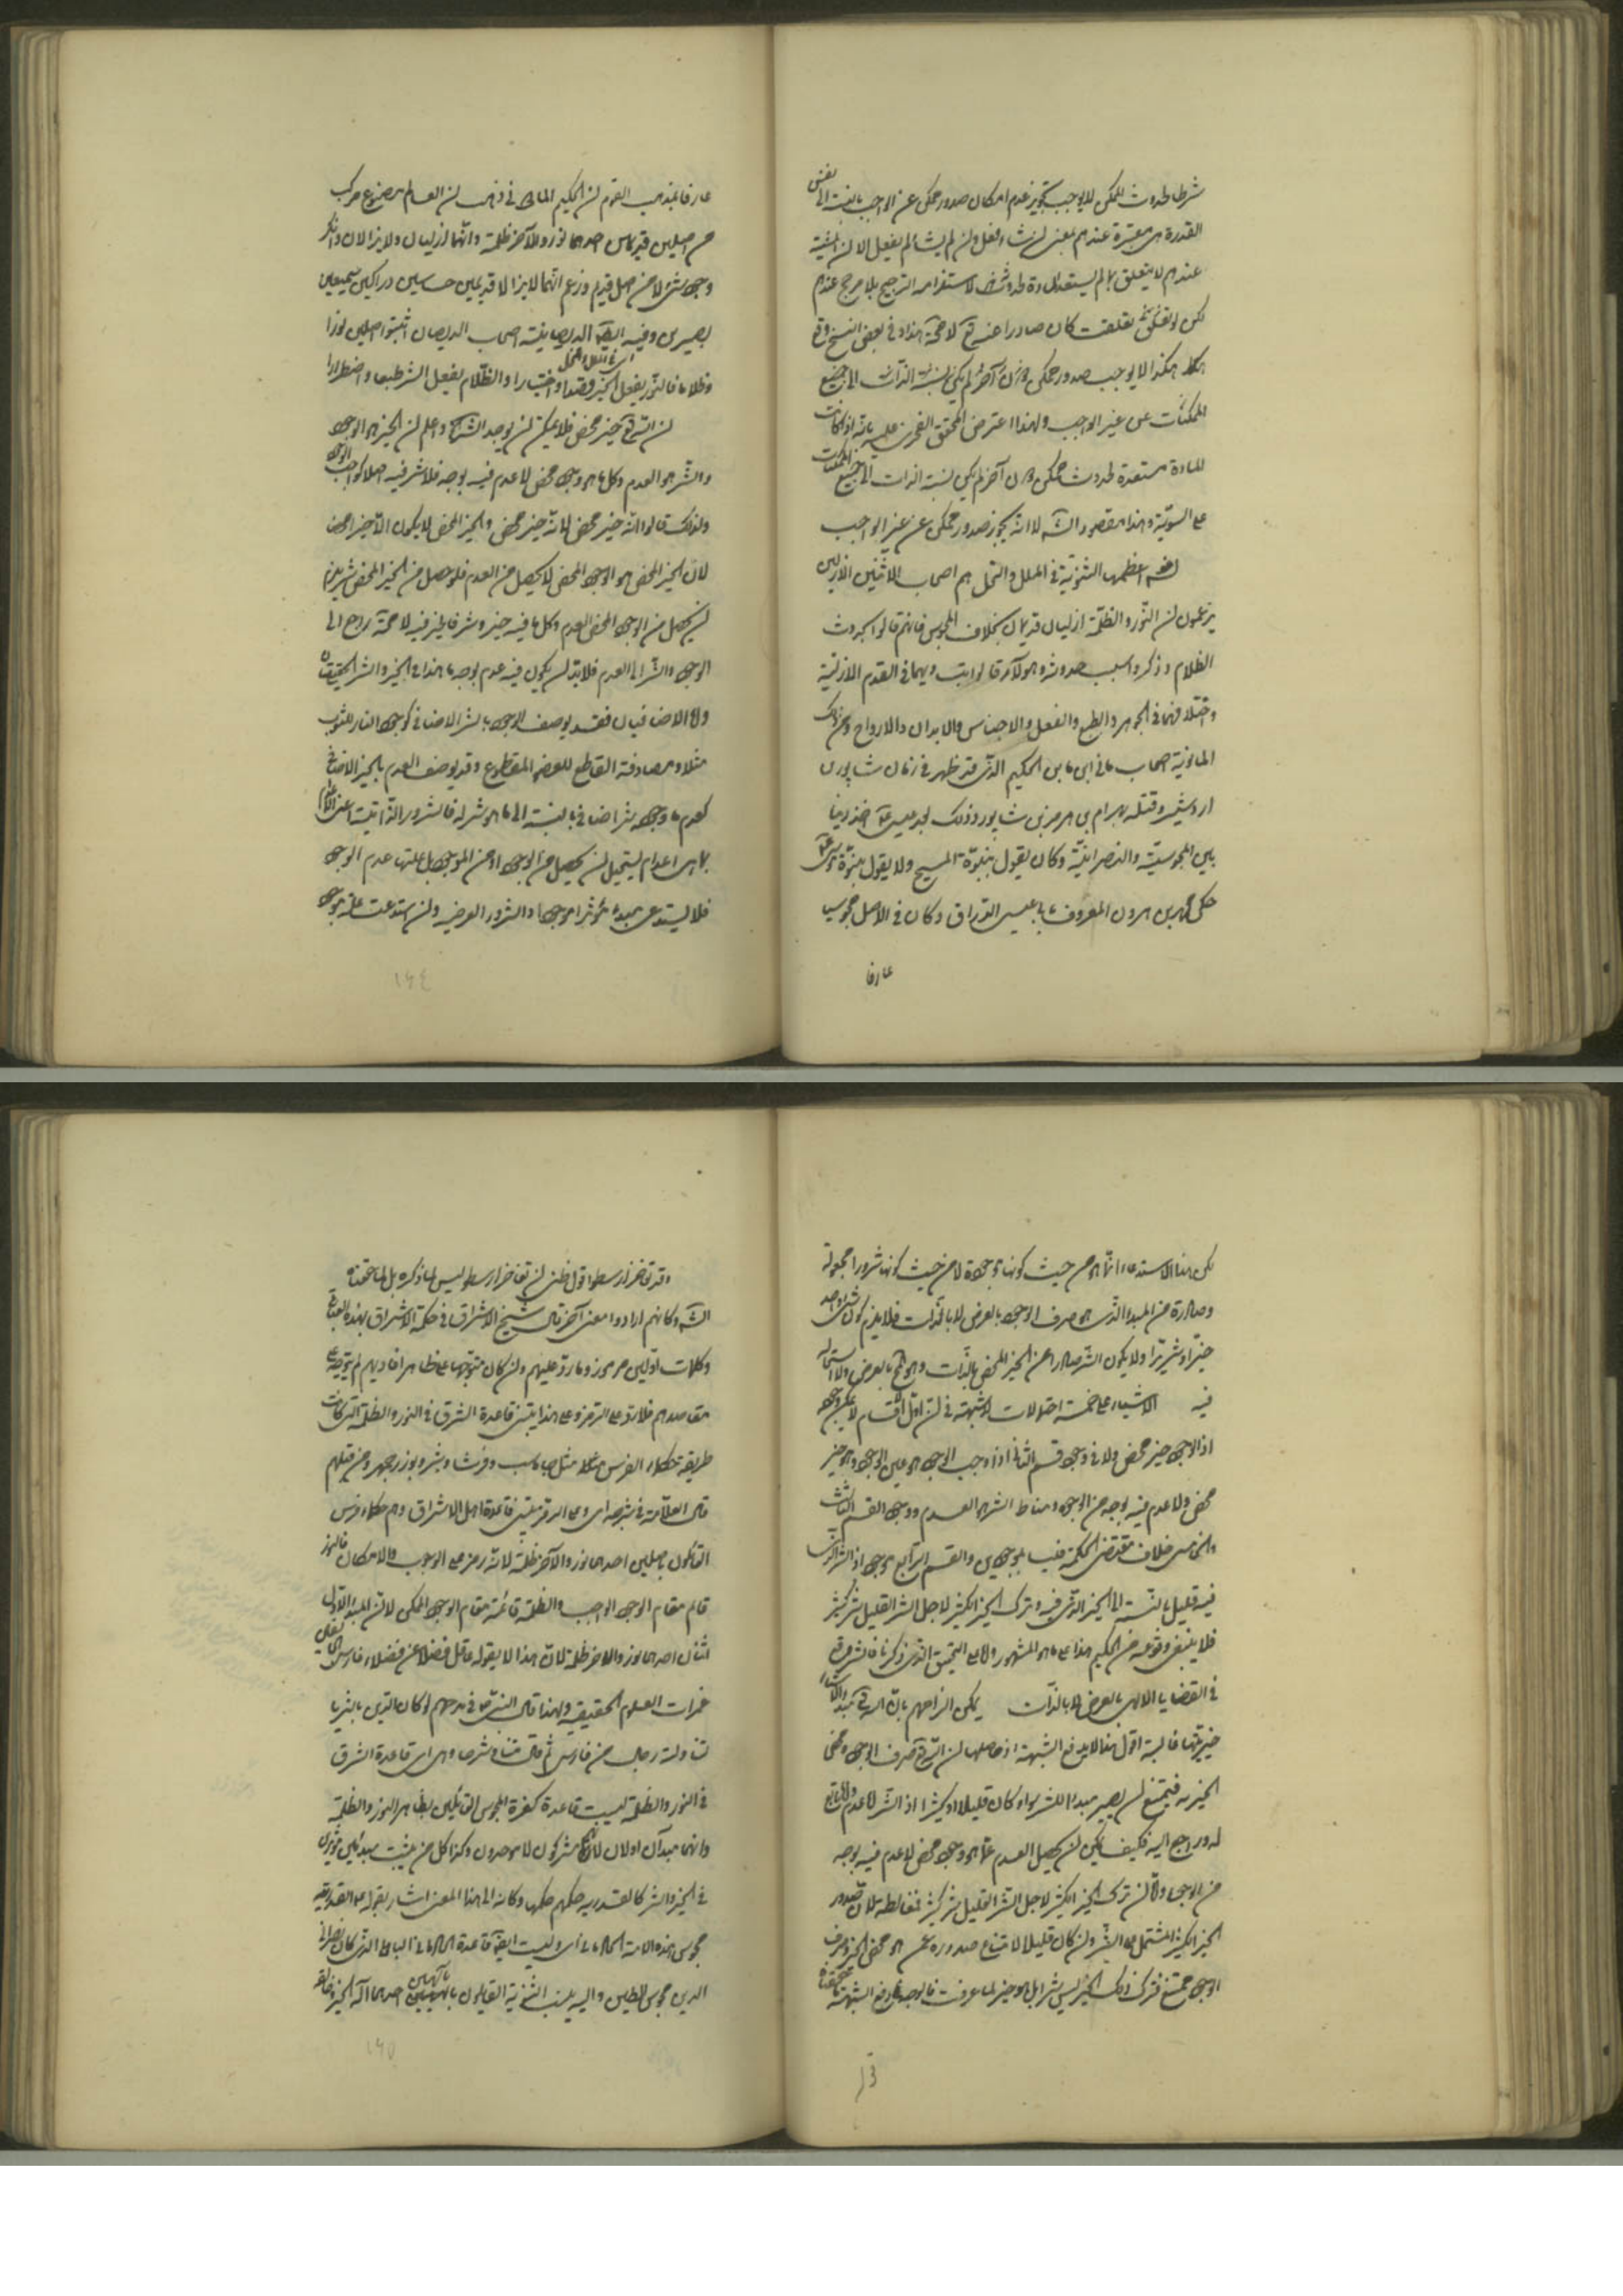 شرطا لحدوث الممكن لا يوجب تجويز عدم امكان صدور ممكن عن الواجب بالنسبة الى نفس
القدرة هى معتبرة عندهم بمعنى ان شاء فعل وان لم يشأ لم يفعل الا ان المشية
عندهم لا يتعلق بما لم يستعد المادة لحدوثه لاستلزامه الترجيح بلا مرجح عندهم
لكن لو تعلقت كان صادرا عنه تع لا محة هذا وفى بعض النسخ وقع
هكذا لا يوجب صدور ممكن دون آخر لم يكن نسبة الذات الى جميع
الممكنات عن غير الواجب ولهذا اعترض المحقق الفخرى عليه بانه اذا كانت
المادة مستعدة لحدوث ممكن دون آخر لم يكن نسبة الذات الى جميع الممكنات
على السوية وهذا مقصود الشه لا انه يجوز صدور ممكن عن غير الواجب
اعظمها الثنوية فى الملل والنحل هم اصحاب الاثنين الازليين
يزعمون ان النور والظلمة ازليان قديمان بخلاف المجوس فانهم قالوا بحدوث
الظلام وذكروا سبب حدوثه وهولآء قالوا بتساويهما فى القدم الازلية
واختلافهما فى الجوهر والطبع والفعل والاجناس والابدان والارواح ومن ذلك
المانوية اصحاب مانى بن الحكيم الذى ظهر فى زمان شاپور بن
اردشير وقتله بهرام بن هرمز بن شاپور وذلك بعد عيسى ع اخذ دينا
بين المجوسية والنصرانية وكان يقول بنبوة المسيح ولا يقول بنبوة موسى ع
حكى محمد بن هرون المعروف بابى عيسى الوراق وكان فى الاصل مجوسيا
عارفا
عارفا بمذهب القوم ان الحكيم المانى ذهب ان العالم مصنوع مركب
من اصلين قديمين احدهما نور والآخر ظلمة وانهما ازليان ولا يزالان وانكر
وجود شئ لا من اصل قديم وزعم انهما لا يزالا قديمين حساسين دراكين سميعين
بصيرين وفيه ايضا الديصانية اصحاب الديصان اثبتوا اصلين نورا
اى فى الملل والنحل
وظلاما فالنور يفعل الخير قصدا واختيارا والظلام يفعل الشر طبعا واضطرارا
ان الله تع خير محض فلا يمكن ان يوجد الشر واعلم ان الخير هو الوجود
والشر هو العدم وكل ما هو وجود محض لا عدم فيه بوجه فلا شر فيه اصلا كواجب الوجود
ولذلك قالوا انه خير محض لانه خير محض والخير المحض لا يكون الا خيرا محضا
لان الخير المحض هو الوجود المحض لا يحصل من العدم فلو حصل من الخير المحض شر يلزم
ان يحصل من الوجود المحض العدم وكل ما فيه خير وشر فالخير فيه لا محة راجع الى
الوجود والشر الى العدم فلا بد ان يكون فيه عدم بوجه ما هذا فى الخير والشر الحقيقيان
واما الاضافيان فقد يوصف الوجود بالشر الاضافى كوجود النار للثوب
مثلا ومصادفة القاطع للعضو المقطوع وقد يوصف العدم بالخير الاضافى
كعدم ما وجوده شر اضافى بالنسبة الى ما هو شر له فالشرور الذاتية اعنى الاعدام
بما هى اعدام يستحيل ان يحصل من الوجود او من الموجود بل علتها عدم الوجود
فلا يستدعى مبدء مؤثرا موجودا والشرور العرضية وان استدعت علة موجودة
١٤٤
لكن هذا الاستدعاء انما هو من حيث كونها موجودة لا من حيث كونها شرورا مجعولة
وصادرة من المبدء الذى هو صرف الوجود بالعرض لا بالذات فلا يلزم كون شئ واحد
خيرا وشريرا ولا يكون الشر صادرا عن الخير المحض بالذات وهو مح بالعرض ولا استحالة
فيه الاشياء على خمسة احتمالات لا شبهة فى ان اول اقسام لا يمكن وجوده
اذ الوجود خير محض ولا فى وجود قسم الثانى اذ واجب الوجود هو عين الوجود وهو خير
محض ولا عدم فيه بوجه من الوجوه ومناط الشر هو العدم ووجود القسم الثالث
والخامس خلاف مقتضى الحكمة فليسا بموجودين والقسم الرابع موجود اذ الشر الذى
فيه قليل بالنسبة الى الخير الذى فيه وترك الخير الكثير لاجل الشر القليل شر كثير
فلا ينبغى وقوعه من الحكيم هذا على ما هو المشهور واما على التحقيق الذى ذكرنا فالشر وقع
فى القضايا الالهى بالعرض لا بالذات يمكن الزامهم بان الله تع مبدء الاشياء
خيريتها غالبة اقول هذا لا يدفع الشبهة اذ حاصلها ان الله تع صرف الوجود ومحض
الخيرية فيمتنع ان يصير مبدءا للشر سواء كان قليلا او كثيرا اذ الشر اما عدم واما تابع
له وراجع اليه فكيف يمكن ان يحصل العدم عما هو وجود محض لا عدم فيه بوجه
من الوجوه واما ان ترك الخير الكثير لاجل الشر القليل شر كثير فمغالطة لان صدور
الخير الكثير المشتمل على الشر وان كان قليلا لامتناع صدوره عن هو محض الخير وصرف
الوجود ممتنع فترك ذلك الخير ليس بشر بل هو خير لما عرفت فالوجه فى دفع الشبهة ما حققناه
وقد تفاخر ارسطو اقول ظنى ان تفاخر ارسطو ليس لما ذكره بل لما حققناه
الشه وكانهم ارادوا معنى آخر قال شيخ الاشراق فى حكمة الاشراق بهذه العبارة
وكلمات الاولين مرموزة وما رد عليهم وان كان متوجها على ظاهر اقاويلهم لم يتوجه على
مقاصدهم فلا رد على الرمز وعلى هذا يبتنى قاعدة الشرق فى النور والظلمة التى كانت
طريقة حكماء الفرس مثل جاماسب وفرشاوشتر وبوزرجمهر ومن قبلهم
قال العلامة فى شرحه اى وعلى الرمز يبتنى قاعدة اهل الاشراق وهم حكماء فرس
القائلون باصلين احدهما نور والآخر ظلمة لانه رمز على الوجوب والامكان فالنور
قائم مقام الوجود الواجب والظلمة قائمة مقام الوجود الممكن لا ان المبدء الاول
اثنان احدهما نور والاخر ظلمة لان هذا لا يقوله عاقل فضلا عن فضلاء فارس الخائضين
غمرات العلوم الحقيقية ولهذا قال النبى ص فى مدحهم لو كان الدين بالثريا
لتناولته رجال من فارس ثم قال متنا وشرحا وهى اى قاعدة الشرق
فى النور والظلمة ليست قاعدة كفرة المجوس القائلين بظاهر النور والظلمة
وانهما مبدآن اولان لانهم مشركون لا موحدون وكذا كل من يثبت مبدئين مؤثرين
فى الخير والشر كالقدرية حكمهم حكمها وكانه الى هذا المعنى اشار بقوله ع القدرية
مجوس هذه الامة الحاد مانى اى وليست ايضا قاعدة الحاد مانى البابلى الذى كان نصرانى
الدين مجوسى الطين واليه ينسب الثنوية القايلون بالهين احدهما اله الخير وخالقه
١٤٥